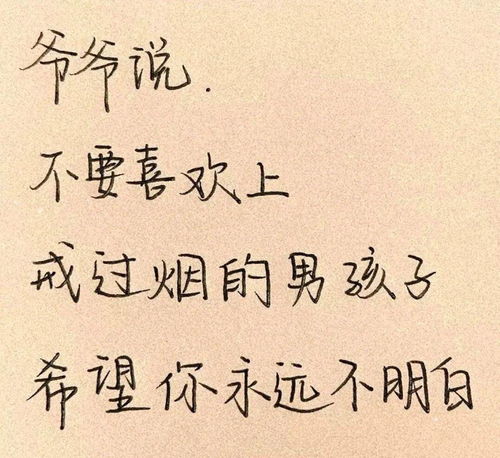 爷爷说.
不要喜欢上
戒过烟的男孩子
希望你永远不明白